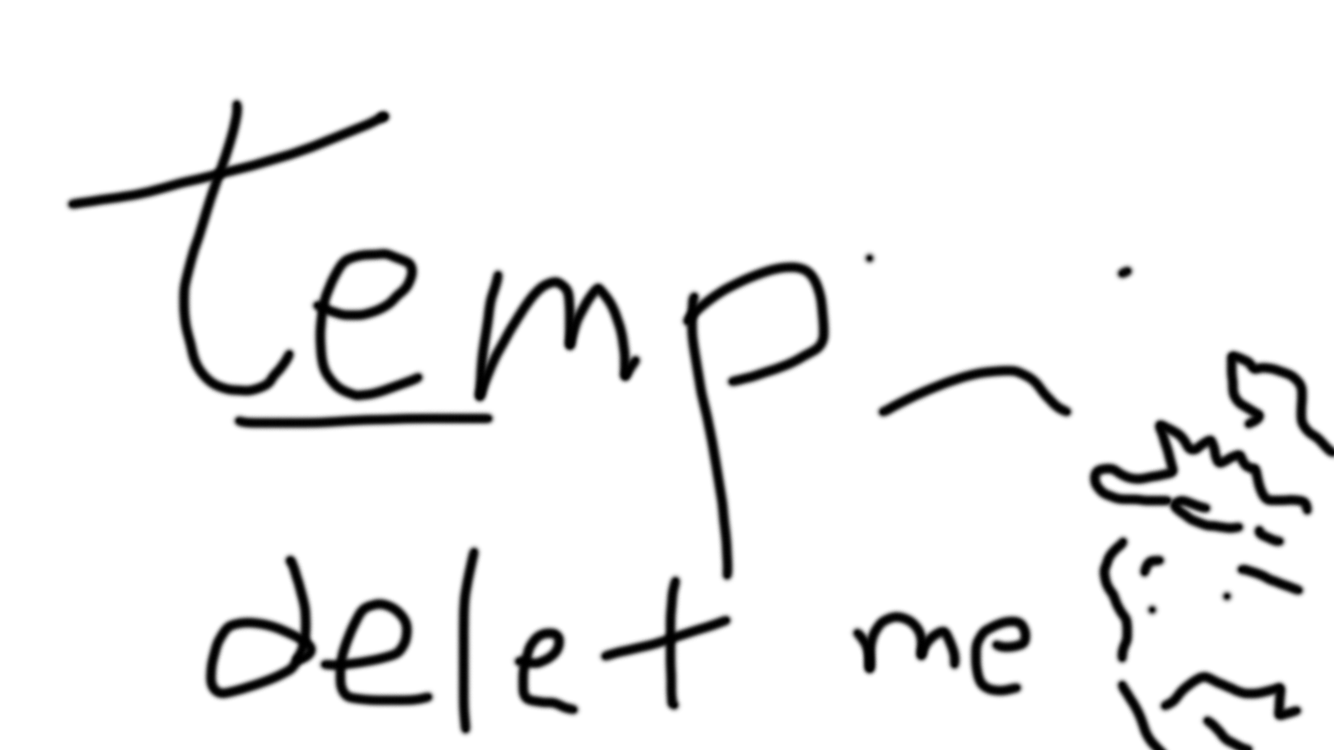 temp
delet me